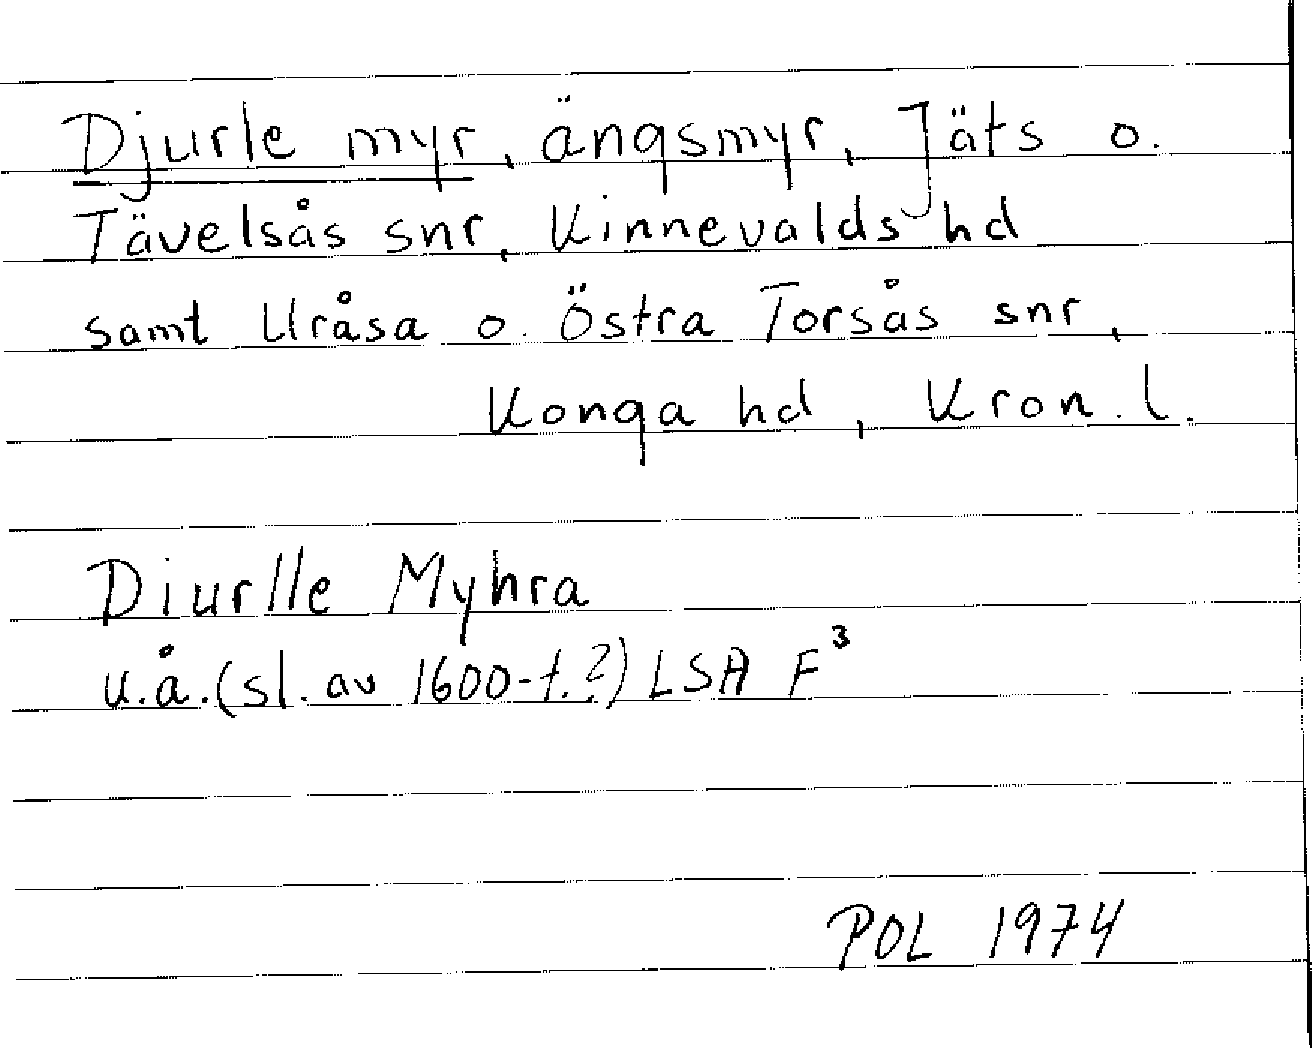 Djurle myr, ängsmyr, Jäts o.
Tävelsås snr, Kinnevalds hd
samt Uråsa o. Östra Torsås snr,
Konga hd, Kron. l.
Diurlle Myhra
u.å. (sl. av 1600-t.?) LSA F³
POL 1974